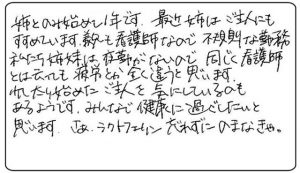 姉とのみ始めて1年です。最近姉はご主人にも
すすめています。姉も看護師なので不規則な勤務
私たち姉妹は、夜勤がないので、同じく看護師
とは云っても疲労とが全く違うと思います。
のみ始めたご主人を気にしているのも
あるようです。みんなで健康に過ごしたいと
思います。さぁ、ラクトフェリン忘れずにのまなきゃ。